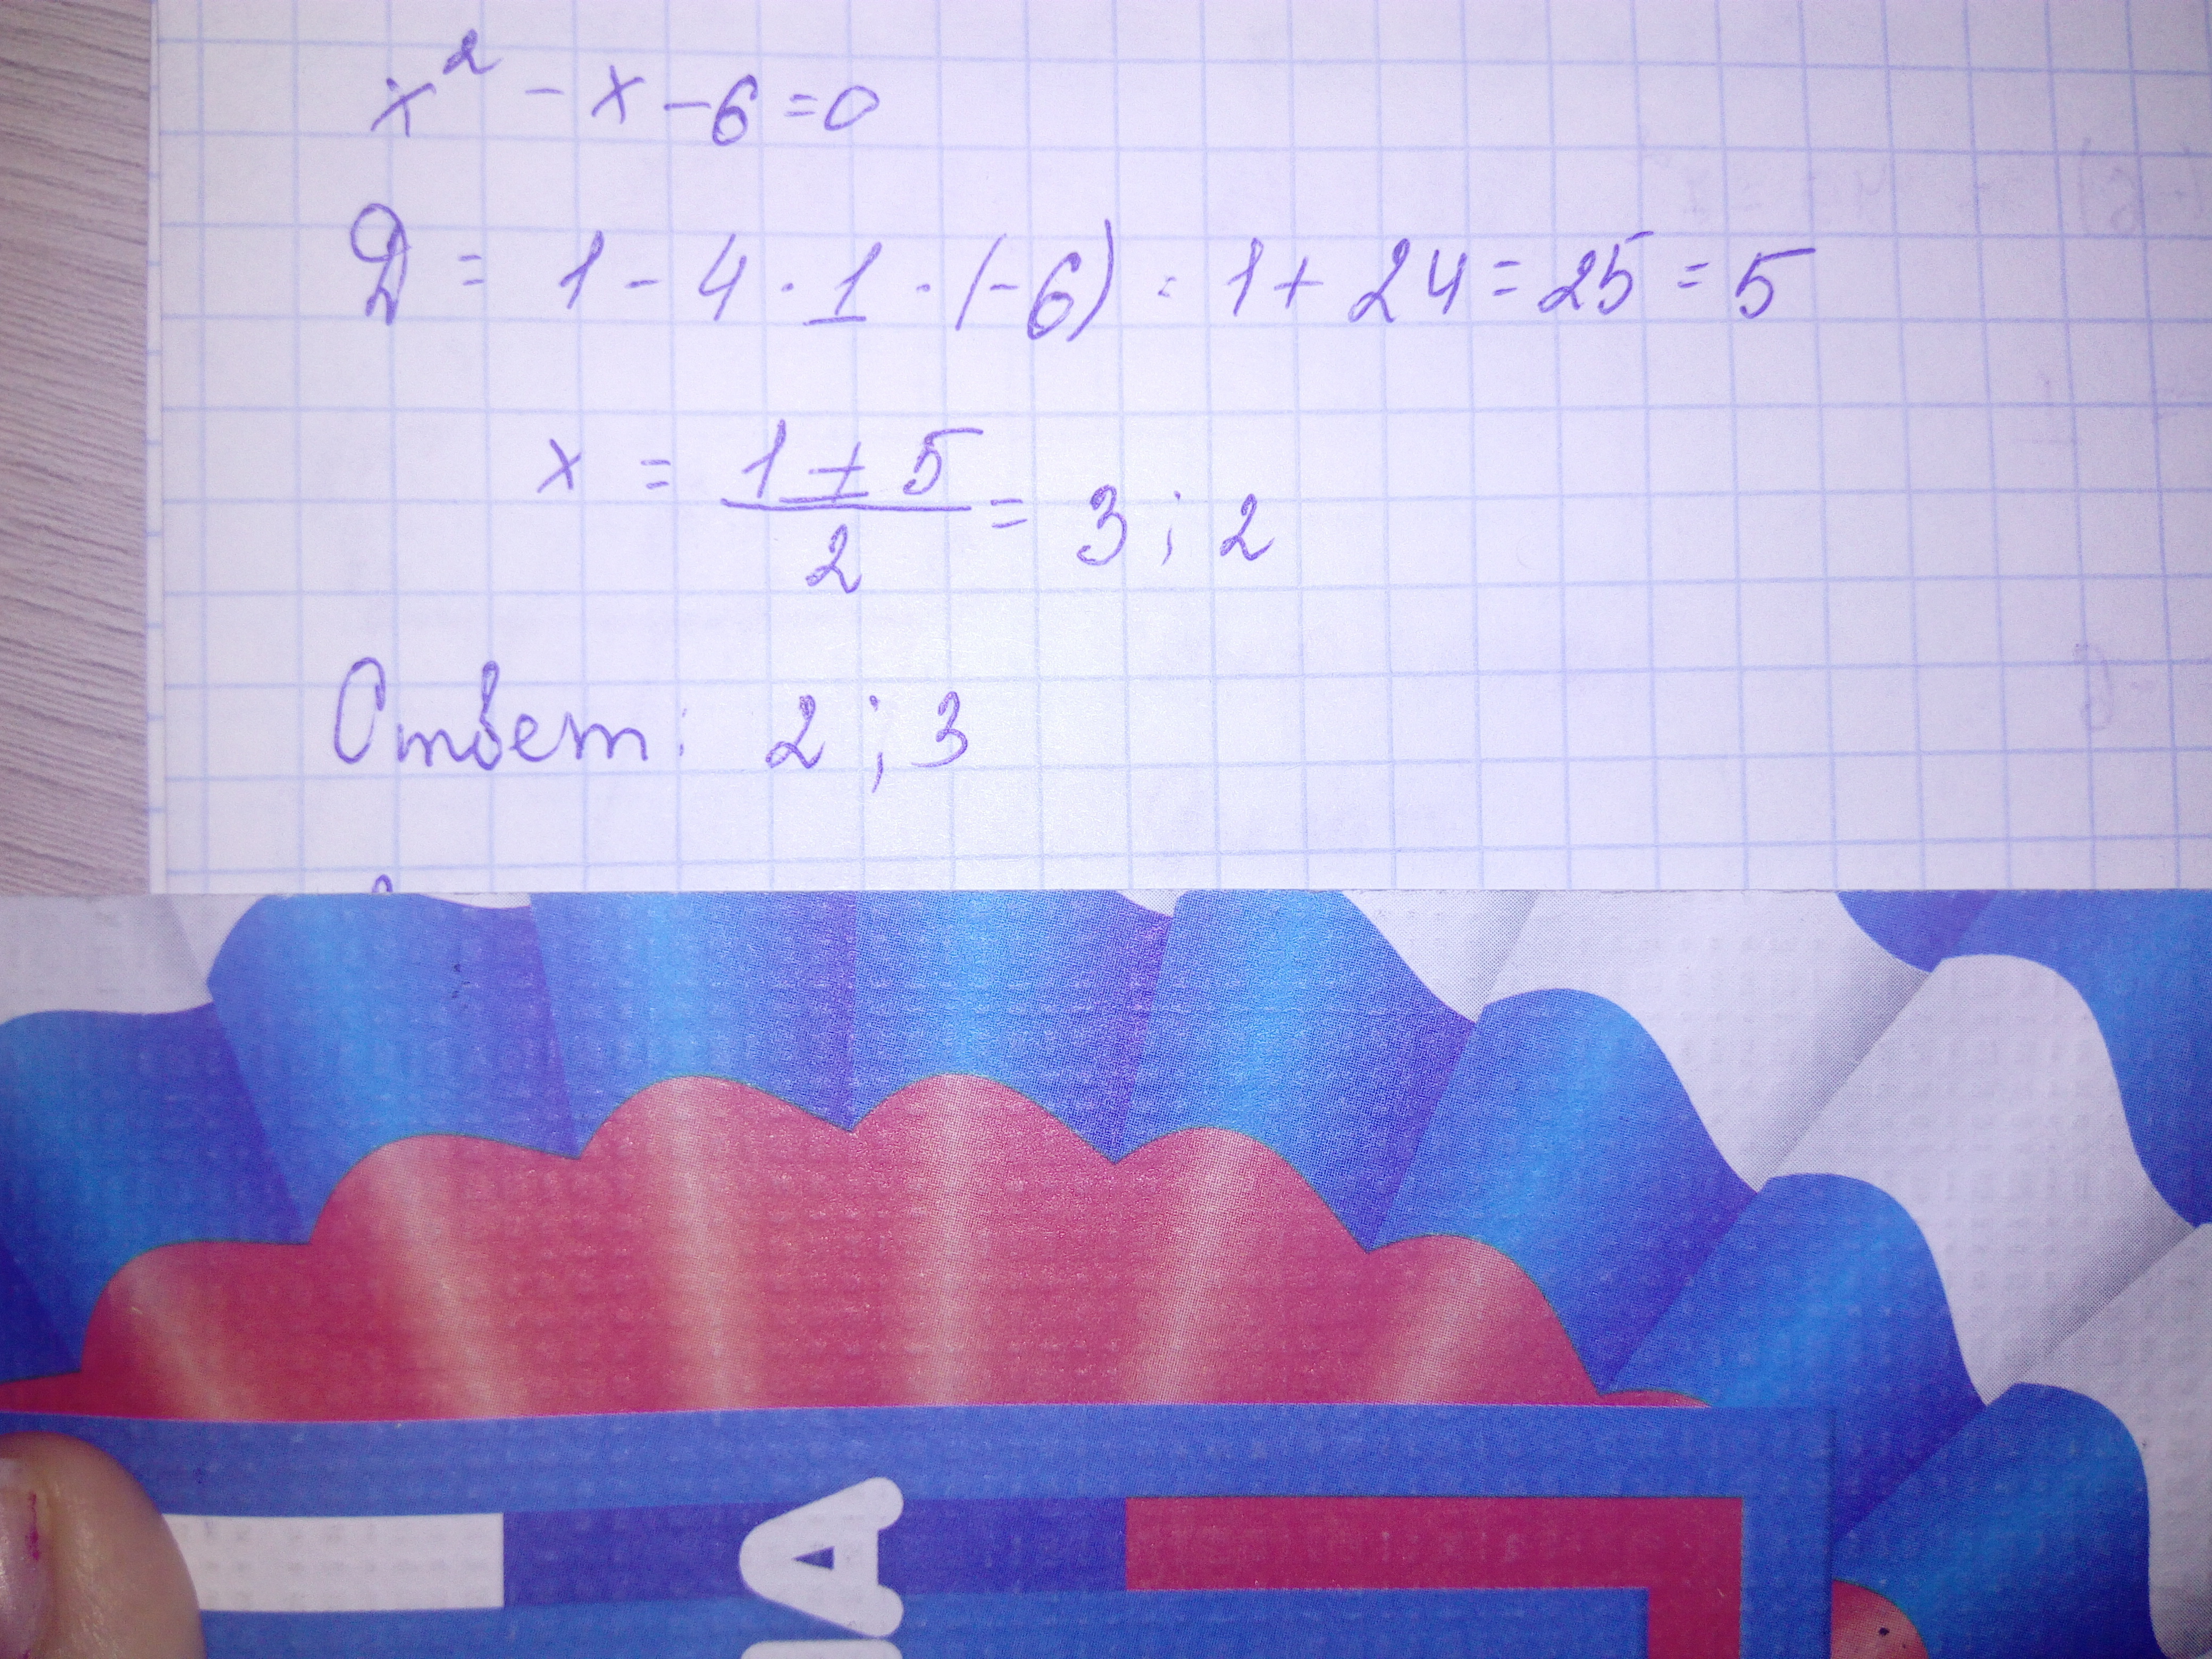 x² - x - 6 = 0
D = 1 - 4 · 1 · (-6) = 1 + 24 = 25 = 5
x = (1 ± 5)/2 = 3 ; 2
Ответ: 2 ; 3
А